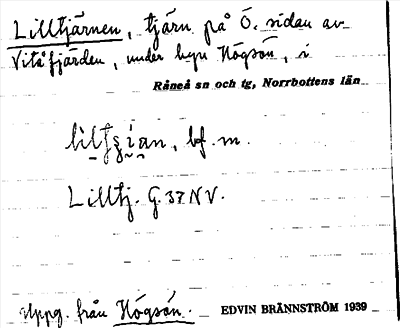 Lilltjärnen, tjärn på Ö. sidan av
Vitåfjärden, under byn Högsön, i
Råneå sn och tg, Norrbottens län
bf. m.
Lilltj. G. 37 NV.
Uppg. från Högsön. EDVIN BRÄNNSTRÖM 1939